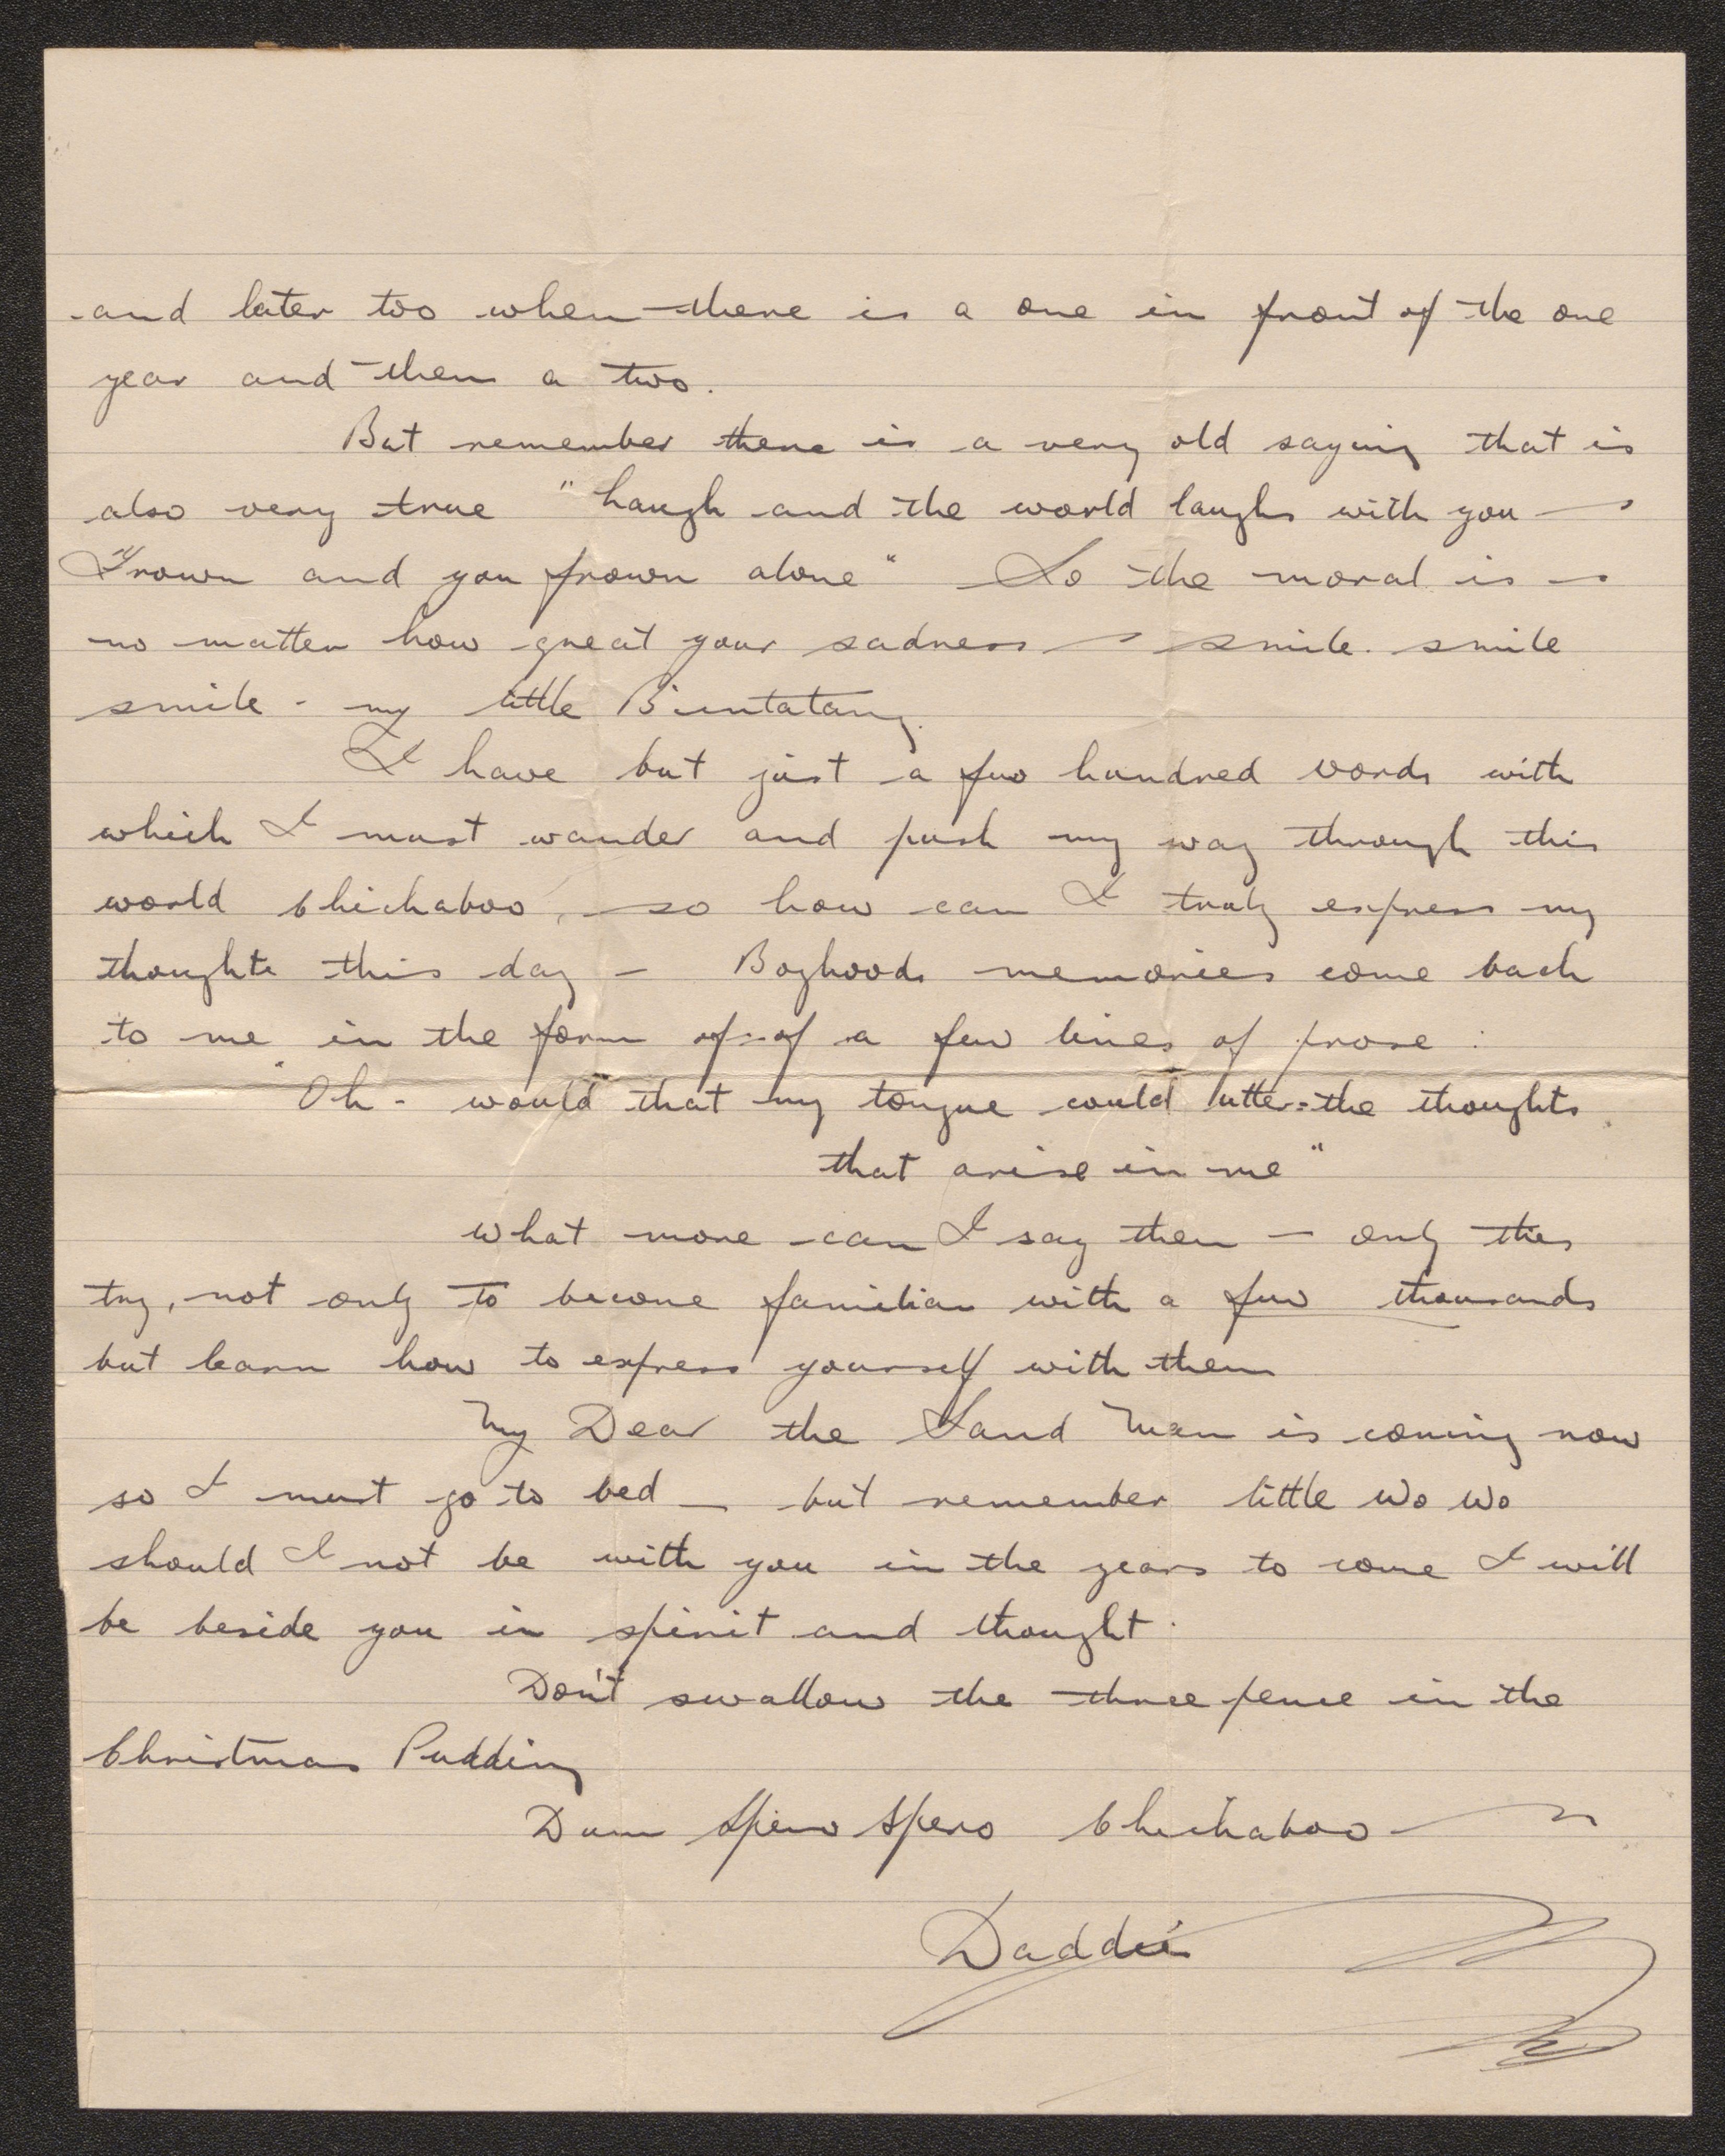 and later too when there is a one in front of the one
year and then a two.
But remember there is a very old saying that is
also very true "Laugh and the world laughs with you —
Frown and you frown alone" So the moral is —
no matter how great your sadness — smile. smile
smile - my little Bintatang.
I have but just a few hundred words with
which I must wander and push my way through this
world Chickaboo, so how can I truly express my
thoughts this day — Boyhoods memories come back
to me in the form of - of a few lines of prose :
"Oh - would that my tongue could utter - the thoughts
that arise in me"
What more can I say then — only this
try, not only to become familiar with a few thousands
but learn how to express yourself with them
My Dear the Sand Man is coming now
so I must go to bed — but remember little Wo Wo
should I not be with you in the years to come I will
be beside you in spirit and thought.
Don't swallow the three pence in the
Christmas Pudding
Dum Spiro Spero Chickaboo —
Daddie